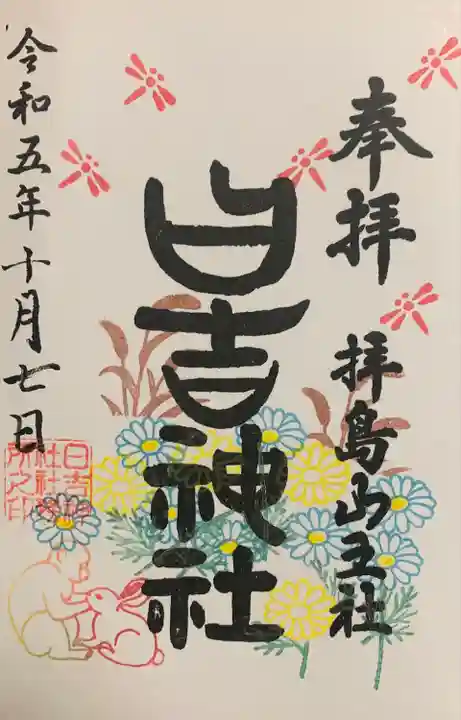 奉拝
拝島山王社
日吉神社
令和五年十月七日
日吉神
社社務
所之印